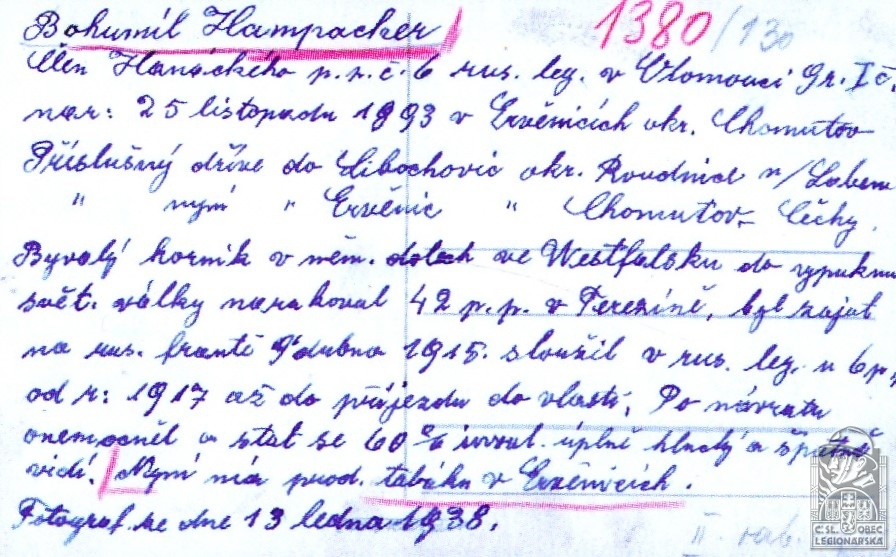 Bohumil Hampacker 1380/130
Člen Hanáckého p.s.č. 6 rus. leg. v Olomouci Gr. I č.
nar: 25 listopadu 1893 v Ervěnicích okr. Chomutov
Příslušný dříve do Libochovic okr. Roudnice n/Labem
" nyní " Ervěnic " Chomutov - Čechy.
Byvalý horník v něm. dolech ve Westfalsku do vypuknu
svět. války narukoval 42 p.p. v Terezíně, byl zajat
na rus. frontě 9 dubna 1915. sloužil v rus. leg. u 6 p.
od r: 1917 až do příjezdu do vlasti. Po návratu
onemocněl a stal se 60% inval. úplně hluchý a špatně
vidí. Nyní má prod. tabáku v Ervěnicích.
Fotograf. ze dne 13 ledna 1938.
II.
ČSL. OBEC
LEGIONÁŘSKÁ